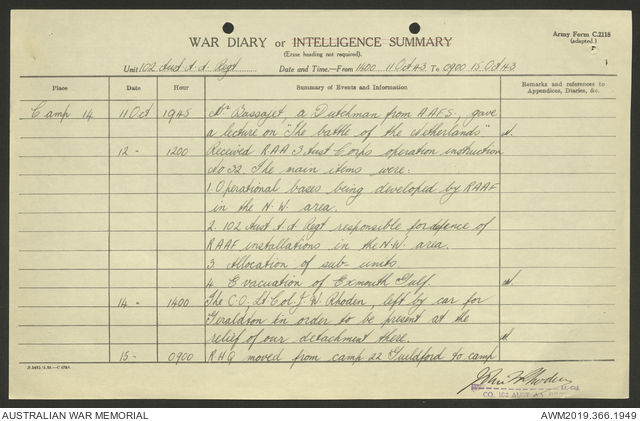 Army Form C.2118
(adapted.)
WAR DIARY or INTELLIGENCE SUMMARY
(Erase heading not required).
Unit 102 Aust A.A. Regt Date and Time.—From 1400 11 Oct 43 To 0900 15 Oct 43
Place Date Hour Summary of Events and Information Remarks and references to Appendices, Diaries, &c.
Camp 14 11 Oct 1945 Mr Bassajet, a Dutchman from A.A.F.S., gave
a lecture on "The battle of the Netherlands"
12 - 1200 Received RAA 3 Aust Corps operation instruction
No 32. The main items were:
1. Operational bases being developed by RAAF
in the N-W. area.
2. 102 Aust A.A. Regt responsible for defence of
RAAF installations in the N.W. area.
3 Allocation of sub-units
4 Evacuation of Exmouth Gulf.
14 - 1400 The C.O., Lt-Col J. W. Rhoden, left by car for
Geraldton in order to be present at the
relief of our detachment there.
15 - 0900 RHQ moved from camp 22 Guildford to camp
CO. 102 AUST AA
AUSTRALIAN WAR MEMORIAL
AWM2019.366.1949